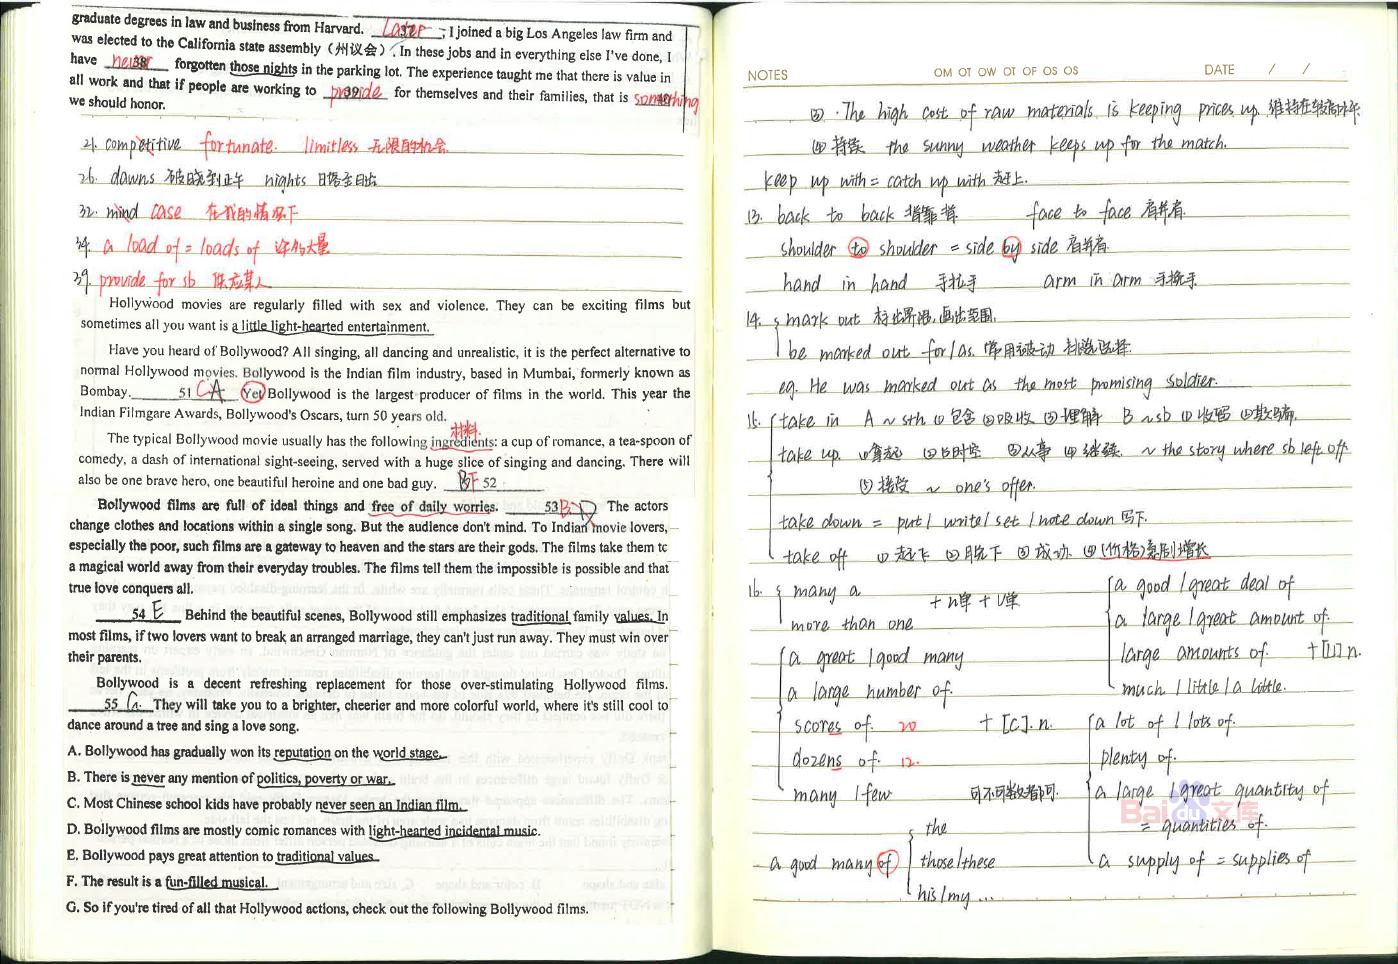 graduate degrees in law and business from Harvard. Later, I joined a big Los Angeles law firm and
was elected to the California state assembly (州议会). In these jobs and in everything else I've done, I
have never 38 forgotten those nights in the parking lot. The experience taught me that there is value in
all work and that if people are working to provide 39 for themselves and their families, that is something 40
we should honor.
21. competitive fortunate. limitless 无限的机会
26. dawns 破晓到正午 nights 日落至日出
32. mind case 在我的情况下
34. a load of = loads of 许多大量
39. provide for sb 供应某人
Hollywood movies are regularly filled with sex and violence. They can be exciting films but
sometimes all you want is a little light-hearted entertainment.
Have you heard of Bollywood? All singing, all dancing and unrealistic, it is the perfect alternative to
normal Hollywood movies. Bollywood is the Indian film industry, based in Mumbai, formerly known as
Bombay. 51 C A Yet Bollywood is the largest producer of films in the world. This year the
Indian Filmgare Awards, Bollywood's Oscars, turn 50 years old.
材料.
The typical Bollywood movie usually has the following ingredients: a cup of romance, a tea-spoon of
comedy, a dash of international sight-seeing, served with a huge slice of singing and dancing. There will
also be one brave hero, one beautiful heroine and one bad guy. B F 52
Bollywood films are full of ideal things and free of daily worries. 53 B D The actors
change clothes and locations within a single song. But the audience don't mind. To Indian movie lovers,
especially the poor, such films are a gateway to heaven and the stars are their gods. The films take them to
a magical world away from their everyday troubles. The films tell them the impossible is possible and that
true love conquers all.
54 E Behind the beautiful scenes, Bollywood still emphasizes traditional family values. In
most films, if two lovers want to break an arranged marriage, they can't just run away. They must win over
their parents.
Bollywood is a decent refreshing replacement for those over-stimulating Hollywood films.
55 G. They will take you to a brighter, cheerier and more colorful world, where it's still cool to
dance around a tree and sing a love song.
A. Bollywood has gradually won its reputation on the world stage.
B. There is never any mention of politics, poverty or war.
C. Most Chinese school kids have probably never seen an Indian film.
D. Bollywood films are mostly comic romances with light-hearted incidental music.
E. Bollywood pays great attention to traditional values.
F. The result is a fun-filled musical.
G. So if you're tired of all that Hollywood actions, check out the following Bollywood films.
NOTES OM OT OW OT OF OS OS DATE / /
③ . The high cost of raw materials is keeping prices up. 维持在较高水平
④ 持续 the sunny weather keeps up for the match.
keep up with = catch up with 赶上.
13. back to back 背靠背 face to face 肩并肩.
shoulder to shoulder = side by side 肩并肩.
hand in hand 手拉手 arm in arm 手挽手
14. mark out 标出界限, 画出范围.
be marked out for / as. 常用被动 挑选选择.
eg. He was marked out as the most promising soldier.
15. take in A ~ sth ①包含 ②吸收 ③理解 B ~ sb ①收留 ②欺骗.
take up. ①拿起 ②占时空 ③从事 ④继续. ~ the story where sb left off
⑤接受 ~ one's offer.
take down = put / write / set / note down 写下.
take off ①起飞 ②脱下 ③成功. ④(价格)急剧增长
16. many a + n单 + V单
more than one
a great / good many
a large number of.
scores of. 20 + [C]. n.
dozens of. 12.
many / few
a good / great deal of
a large / great amount of.
large amounts of. + [U] n.
much / little / a little.
可不可数皆可.
a lot of / lots of.
plenty of.
a large / great quantity of
= quantities of.
a supply of = supplies of
a good many of
the
those/these
his/my ...
Bai du 文库